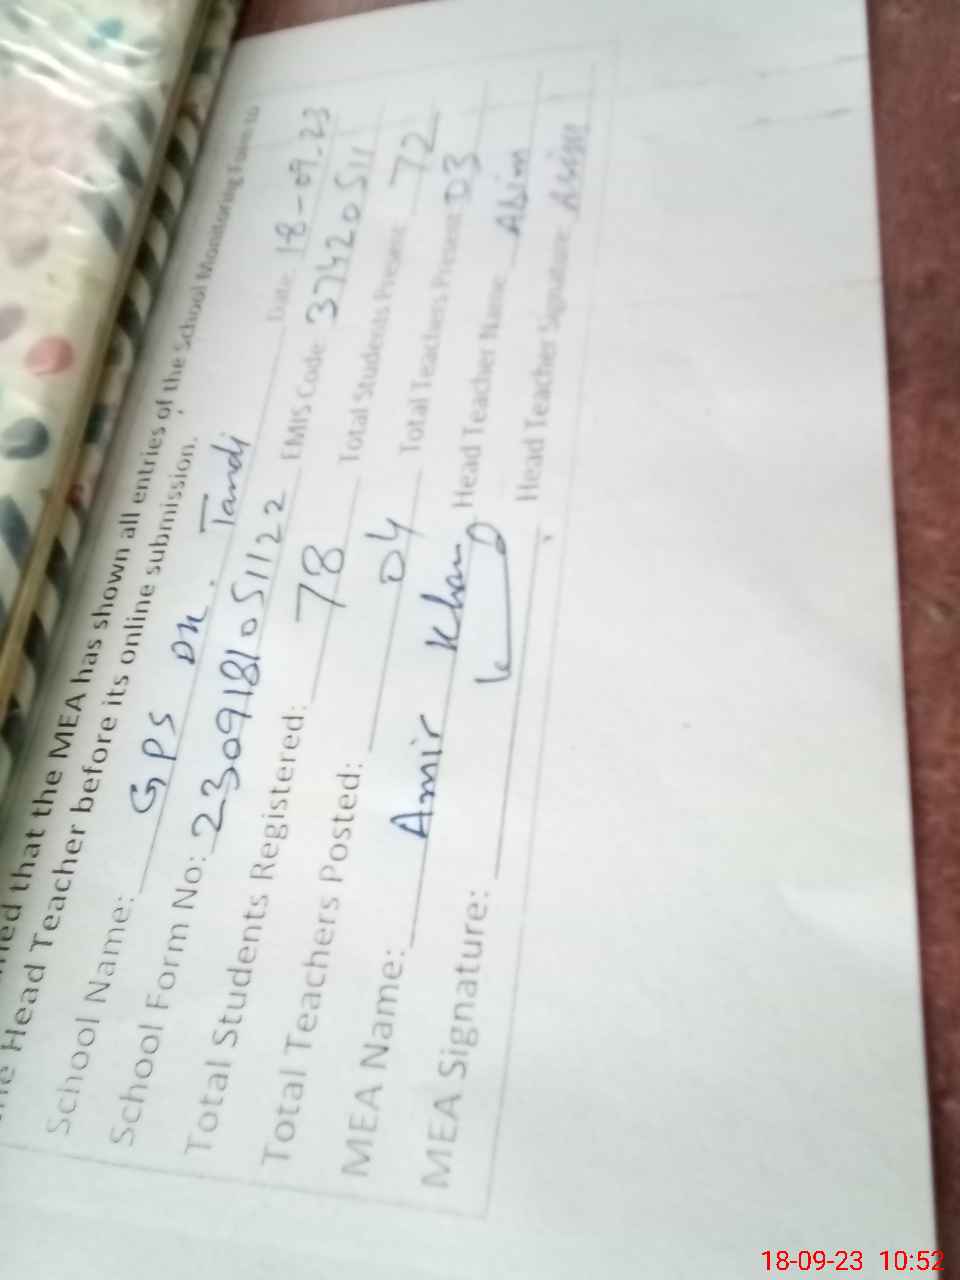 that the MEA has shown all entries of the School Monitoring Form to
Head Teacher before its online submission.
School Name: GPS DK. Tandi Date: 18-09-23
School Form No: 2309181051122 EMIS Code: 37420511
Total Students Registered: 78 Total Students Present: 72
Total Teachers Posted: 04 Total Teachers Present: 03
MEA Name: Amir Khan Head Teacher Name: Asim
MEA Signature: Head Teacher Signature: Asim
18-09-23 10:52